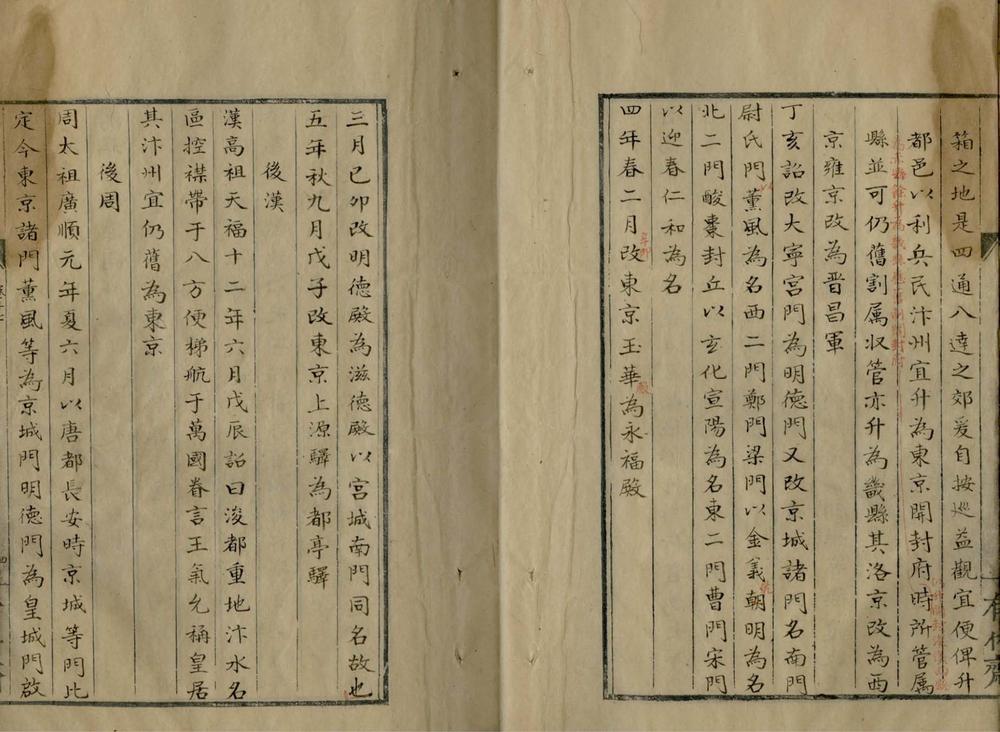 箱之地是四通八達之郊爰自按巡益觀宜便俾升
都邑以利兵民汴州宜升為東京開封府時所管属
縣並可仍舊割属收管亦升為畿縣其洛京改為西
京雍京改為晋昌軍
丁亥詔改大寧宮門為明德門又改京城諸門名南門
尉氏門薰風為名西二門鄭門梁門以金義朝明為名
北二門酸棗封丘以玄化宣陽為名東二門曹門宋門
以迎春仁和為名
四年春二月改東京玉華為永福殿
三月己卯改明德殿為滋德殿以宮城南門同名故也
五年秋九月戊子改東京上源驛為都亭驛
後漢
漢高祖天福十二年六月戊辰詔曰浚都重地汴水名
區控襟帶于八方便梯航于萬國眷言王氣允稱皇居
其汴州宜仍舊為東京
後周
周太祖廣順元年夏六月以唐都長安時京城等門比
定今東京諸門薰風等為京城門明德門為皇城門啟